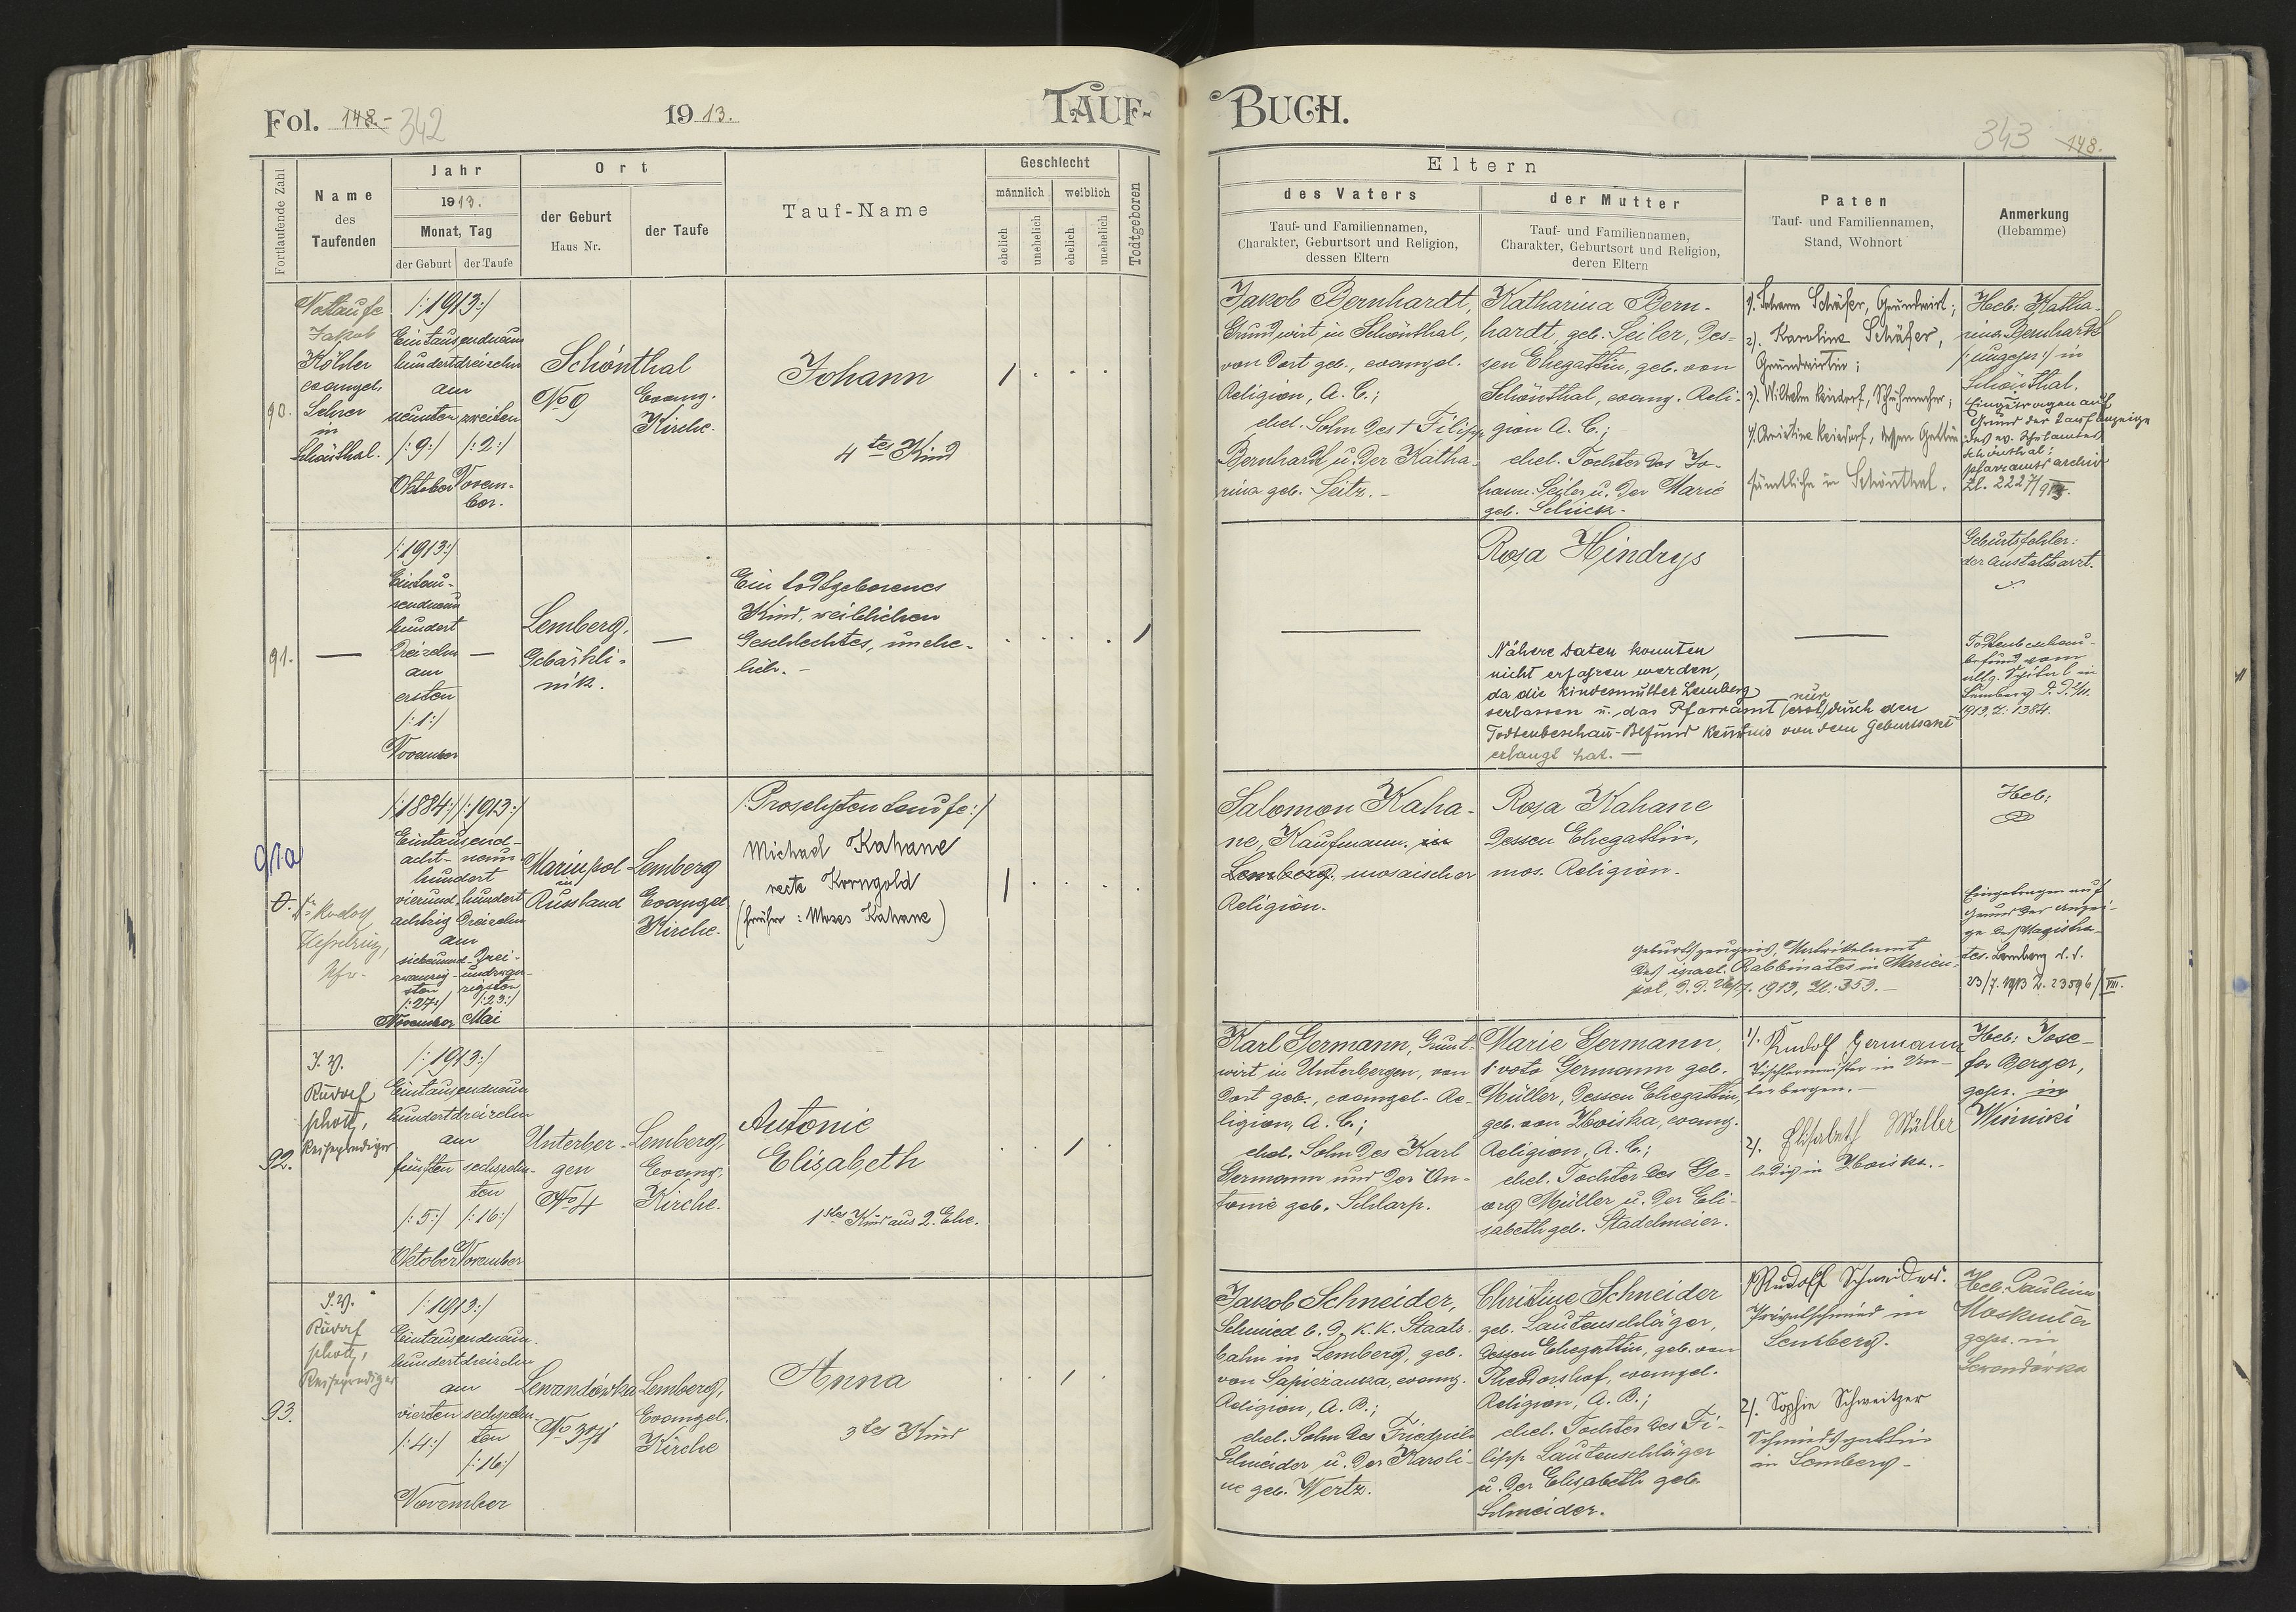 Fol. 148.- 342
19 13.
TAUF-
BUCH.
343 148.
Fortlaufende Zahl
Name
des
Taufenden
Jahr
1913.
Monat, Tag
der Geburt
der Taufe
Ort
der Geburt
Haus Nr.
der Taufe
Tauf-Name
Geschlecht
männlich
weiblich
ehelich
unehelich
ehelich
unehelich
Todtgeboren
Eltern
des Vaters
Tauf- und Familiennamen,
Charakter, Geburtsort und Religion,
dessen Eltern
der Mutter
Tauf- und Familiennamen,
Charakter, Geburtsort und Religion,
deren Eltern
Paten
Tauf- und Familiennamen,
Stand, Wohnort
Anmerkung
(Hebamme)
90.
Nottaufe
Jakob
Köhler
evangel.
Lehrer
in
Schönthal.
/:1913:/
Eintausendneun
hundertdreizehn
am
neunten
/:9:/
Oktober
zweiten
/:2:/
Novem-
ber.
Schönthal
No 9
Evang.
Kirche.
Johann
4tes Kind
Jakob Bernhardt,
Grundwirt in Schönthal,
von dort geb., evangel.
Religion, A. C.;
ehel. Sohn des † Filipp
Bernhard u. der Katha-
rina geb. Seitz.-
Katharina Bern-
hardt, geb. Seiler, des-
sen Ehegattin, geb. von
Schönthal, evang. Reli-
gion A. C.;
ehel. Tochter des Jo-
hann Seiler u. der Marie
geb. Schick.
1). Johann Schäfer, Grundwirt;
2). Karoline Schäfer,
Grundwirtin;
3). Wilhelm Reindorf, Schuhmacher;
4). Christine Reindorf, dessen Gattin;
sämtliche in Schönthal.
Heb: Katha-
rina Bernhardt
/:ungepr:/ in
Schönthal.
Eingetragen auf
Grund der Taufanzeige
des ev. Schulamtes
Schönthal;
Pfarramtsarchiv
Zl. 2227/913.
91.
/:1913:/
Eintau-
sendneun
hundert
dreizehn
am
ersten
/:1:/
November
Lemberg,
Gebärkli-
nik.
Ein todtgeborenes
Kind, weiblichen
Geschlechtes, unehe-
lich.-
Rosa Hindrys
Nähere Daten konnten
nicht erfahren werden,
da die Kindesmutter Lemberg
verlassen u. das Pfarramt nur (erst) durch den
Todtenbeschau-Befund Kenntnis von dem Geburtsakt
erlangt hat.-
Geburtshelfer:
der Anstaltsarzt.
Todtenbeschau-
befund vom
allg. Spital in
Lemberg
1913, Z: 1384.
91a
0.
Dr Rudolf
Kesselring,
Pfr.
/:1884:/
/:1913:/
Eintausend-
acht- neun
hundert
vierund- hundert
achtzig dreizehn
am
siebenund- drei-
zwanzig- undzwan-
sten zigsten
/:27:/ /:23:/
November Mai
Mariupol
in
Russland
Lemberg
Evangel.
Kirche.
/:Proselytentaufe:/
Michael Kahane
recte Korngold
(früher: Moses Kahane)
Salomon Kaha-
ne, Kaufmann. in
Lemberg, mosaischer
Religion.
Rosa Kahane
dessen Ehegattin,
mos. Religion.
Geburtszeugnis, Matrikelamt
des israel. Rabbinates in Mariu-
pol, d.d. 26/7. 1913, Zl: 353.-
Heb:
Eingetragen auf
Grund der Anzei-
ge des Magistra-
tes. Lemberg d.d.
23/7. 1913 Z. 23596/VIII.
92.
I. V.
Rudolf
phott,
Reiseprediger
/:1913:/
Eintausendneun
hundertdreizehn
am
fünften sechszehn-
ten
/:5:/ /:16:/
Oktober November
Unterber-
gen
No 4
Lemberg,
Evang.
Kirche.
Antonie
Elisabeth
1stes Kind aus 2. Ehe.
Karl Germann, Grund-
wirt in Unterbergen, von
dort geb., evangel. Re-
ligion, A. C.;
ehel. Sohn des Karl
Germann und der An-
tonie geb. Schlarp.
Marie Germann,
1 voto Germann geb.
Müller, dessen Ehegattin,
geb. von Hoiska, evang.
Religion, A. C.;
ehel. Tochter des Ge-
org Müller u. der Eli-
sabeth geb. Stadelmeier.
1). Rudolf Germann
Tischlermeister in Un-
terbergen.-
2). Elisabeth Müller
ledig in Hoiska.-
Heb: Jose-
fa Berger,
gepr. in
Winniki
93.
I. V.
Rudolf
phott,
Reiseprediger
/:1913:/
Eintausendneun-
hundertdreizehn
am
vierten sechszehn-
ten
/:4:/
/:16:/
November
Lewandówka
No 371
Lemberg,
Evangel.
Kirche
Anna
3tes Kind
Jakob Schneider,
Schmied b. d. K. K. Staats-
bahn in Lemberg, geb.
von Sapiezanka, evang.
Religion, A. B.;
ehel. Sohn des Friedrich
Schneider u. der Karoli-
ne geb. Wertz.
Christine Schneider
geb. Lautenschläger,
dessen Ehegattin, geb. von
Theodorshof, evangel.
Religion, A. B.;
ehel. Tochter des Fi-
lipp Lautenschläger
u. der Elisabeth geb.
Schneider.
1) Rudolf Schneider.
Privatschmied in
Lemberg.
2). Sophie Schweitzer
Schmiedsgattin
in Lemberg-
Heb: Paulina
gepr. in
Lewandówka